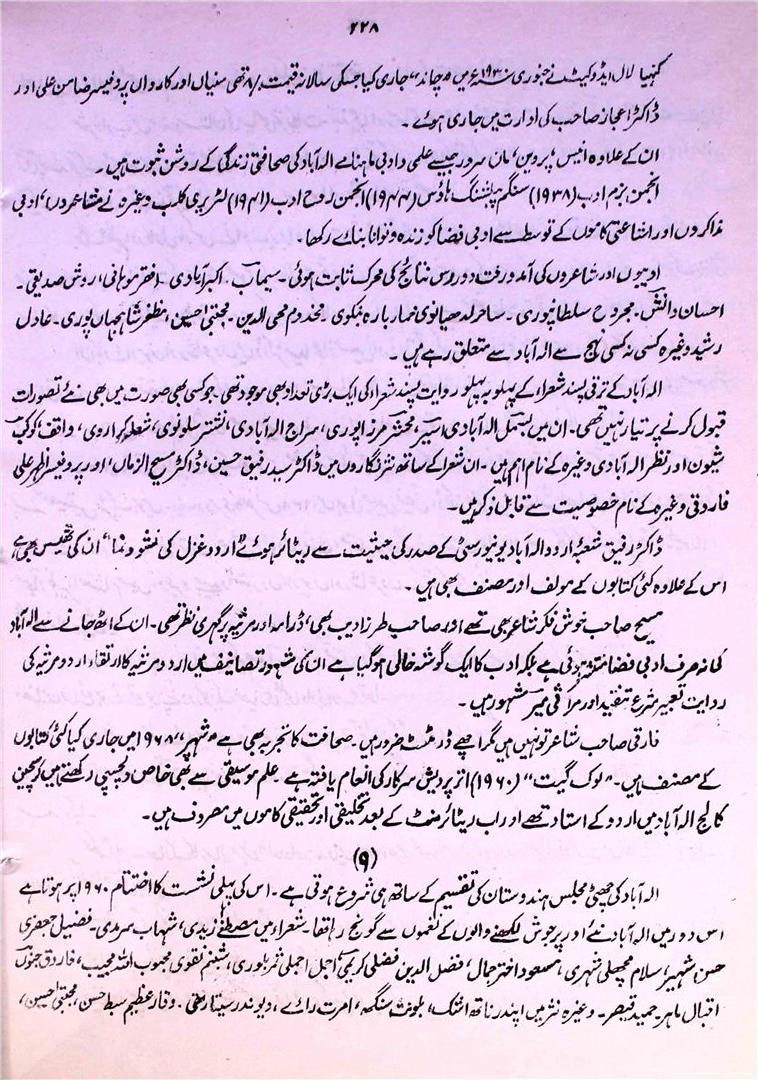 ۲۲۸
کنہیا لال ایڈوکیٹ نے جنوری ۱۹۳۰ء میں "چاند" جاری کیا جسکی سالانہ قیمت ۸/ تھی سنیاں اور کارواں پروفیسر ضامن علی اور
ڈاکٹر اعجاز صاحب کی ادارت میں جاری ہوئے۔
ان کے علاوہ انیس 'پروین' مان سرور جیسے علمی و ادبی ماہنامے الہ آباد کی صحافتی زندگی کے روشن ثبوت ہیں۔
انجمن بزم ادب (۱۹۳۸) سنگم پبلشنگ ہاؤس (۱۹۴۴) انجمن روح ادب (۱۹۴۱) لٹریری کلب وغیرہ نے مشاعروں' ادبی
مذاکروں اور اشاعتی کاموں کے توسط سے ادبی فضا کو زندہ و توانا بنائے رکھا۔
ادیبوں اور شاعروں کی آمدورفت دور رس نتائج کی محرک ثابت ہوئی۔ سیماب۔ اکبرآبادی۔ افقر موہانی، روش صدیقی۔
احسان دانش۔ مجروح سلطانپوری۔ ساحر لدھیانوی خمار بارہ بنکوی۔ مخدوم محی الدین۔ مجتبیٰ حسین، مظفر شاہجہاں پوری۔ عادل
رشید وغیرہ کسی نہ کسی نہج سے الہ آباد سے متعلق رہے ہیں۔
الہ آباد کے ترقی پسند شعراء کے پہلو بہ پہلو روایت پسند شعراء کی ایک بڑی تعداد بھی موجود تھی۔ جو کسی بھی صورت میں بھی نئے تصورات
قبول کرنے پر تیار نہیں تھی۔ ان میں بسمل الہ آبادی، اسیر، محشر مرزاپوری، سراج الہ آبادی، نشتر سلونوی، شعلہ کراروی، واقف، کوکب
شیون اور نظر الہ آبادی وغیرہ کے نام اہم ہیں۔ ان شعراء کے ساتھ نثر نگاروں میں ڈاکٹر سید رفیق حسین، ڈاکٹر مسیح الزماں' اور پروفیسر اظہر علی
فاروقی وغیرہ کے نام خصوصیت سے قابل ذکر ہیں۔
ڈاکٹر رفیق شعبۂ اردو الہ آباد یونیورسٹی کے صدر کی حیثیت سے ریٹائر ہوئے "اردو غزل کی نشوونما" ان کی تھیسس بھی ہے
اس کے علاوہ کئی کتابوں کے مولف اور مصنف بھی ہیں۔
مسیح صاحب خوش فکر شاعر بھی تھے اور صاحب طرز ادیب بھی' ڈرامہ اور مرثیہ پر گہری نظر تھی۔ ان کے اٹھ جانے سے الہ آباد
کی نہ صرف ادبی فضا متاثر ہوئی ہے بلکہ ادب کا ایک گوشہ خالی ہو گیا ہے ان کی مشہور تصانیف میں اردو مرثیہ کا ارتقاء اردو مرثیہ کی
روایت تعبیر تشریح تنقید اور مراثی میر مشہور ہیں۔
فارقی صاحب شاعر تو نہیں ہیں مگر اچھے ڈرامٹسٹ ضرور ہیں۔ صحافت کا تجربہ بھی ہے "شہپر" ۱۹۶۸ میں جاری کیا کئی کتابوں
کے مصنف ہیں۔ "لوک گیت" (۱۹۶۰) اتر پردیش سرکار کی انعام یافتہ ہے۔ علم موسیقی سے بھی خاص دلچسپی رکھتے ہیں کرسچین
کالج الہ آباد میں اردو کے استاد تھے اور اب ریٹائرمنٹ کے بعد تخلیقی اور تحقیقی کاموں میں مصروف ہیں۔
(۹)
الہ آباد کی چھٹی مجلس ہندوستان کی تقسیم کے ساتھ ہی شروع ہوتی ہے۔ اس کی پہلی نشست کا اختتام ۱۹۶۰ پر ہوتا ہے
اس دور میں الہ آباد نئے اور پرجوش لکھنے والوں کے نغموں سے گونج رہا تھا۔ شعراء میں مصطفیٰ زیدی، شہاب سرمدی۔ فضیل جعفری
حسن شہیر، سلام مچھلی شہری، مسعود اختر جمال' فضل الدین فضلی کریمی' اجمل اجملی شمر بلوری، شبنم نقوی محبوب اللہ مجیب، فاروق جنوں
اقبال ماہر۔ حمید قیصر۔ وغیرہ نثر میں اپندر ناتھ اشک، بلونت سنگھ، امرت رائے، دیوندر ستیارتھی۔ وقار عظیم سبط حسن، مجتبیٰ حسین،